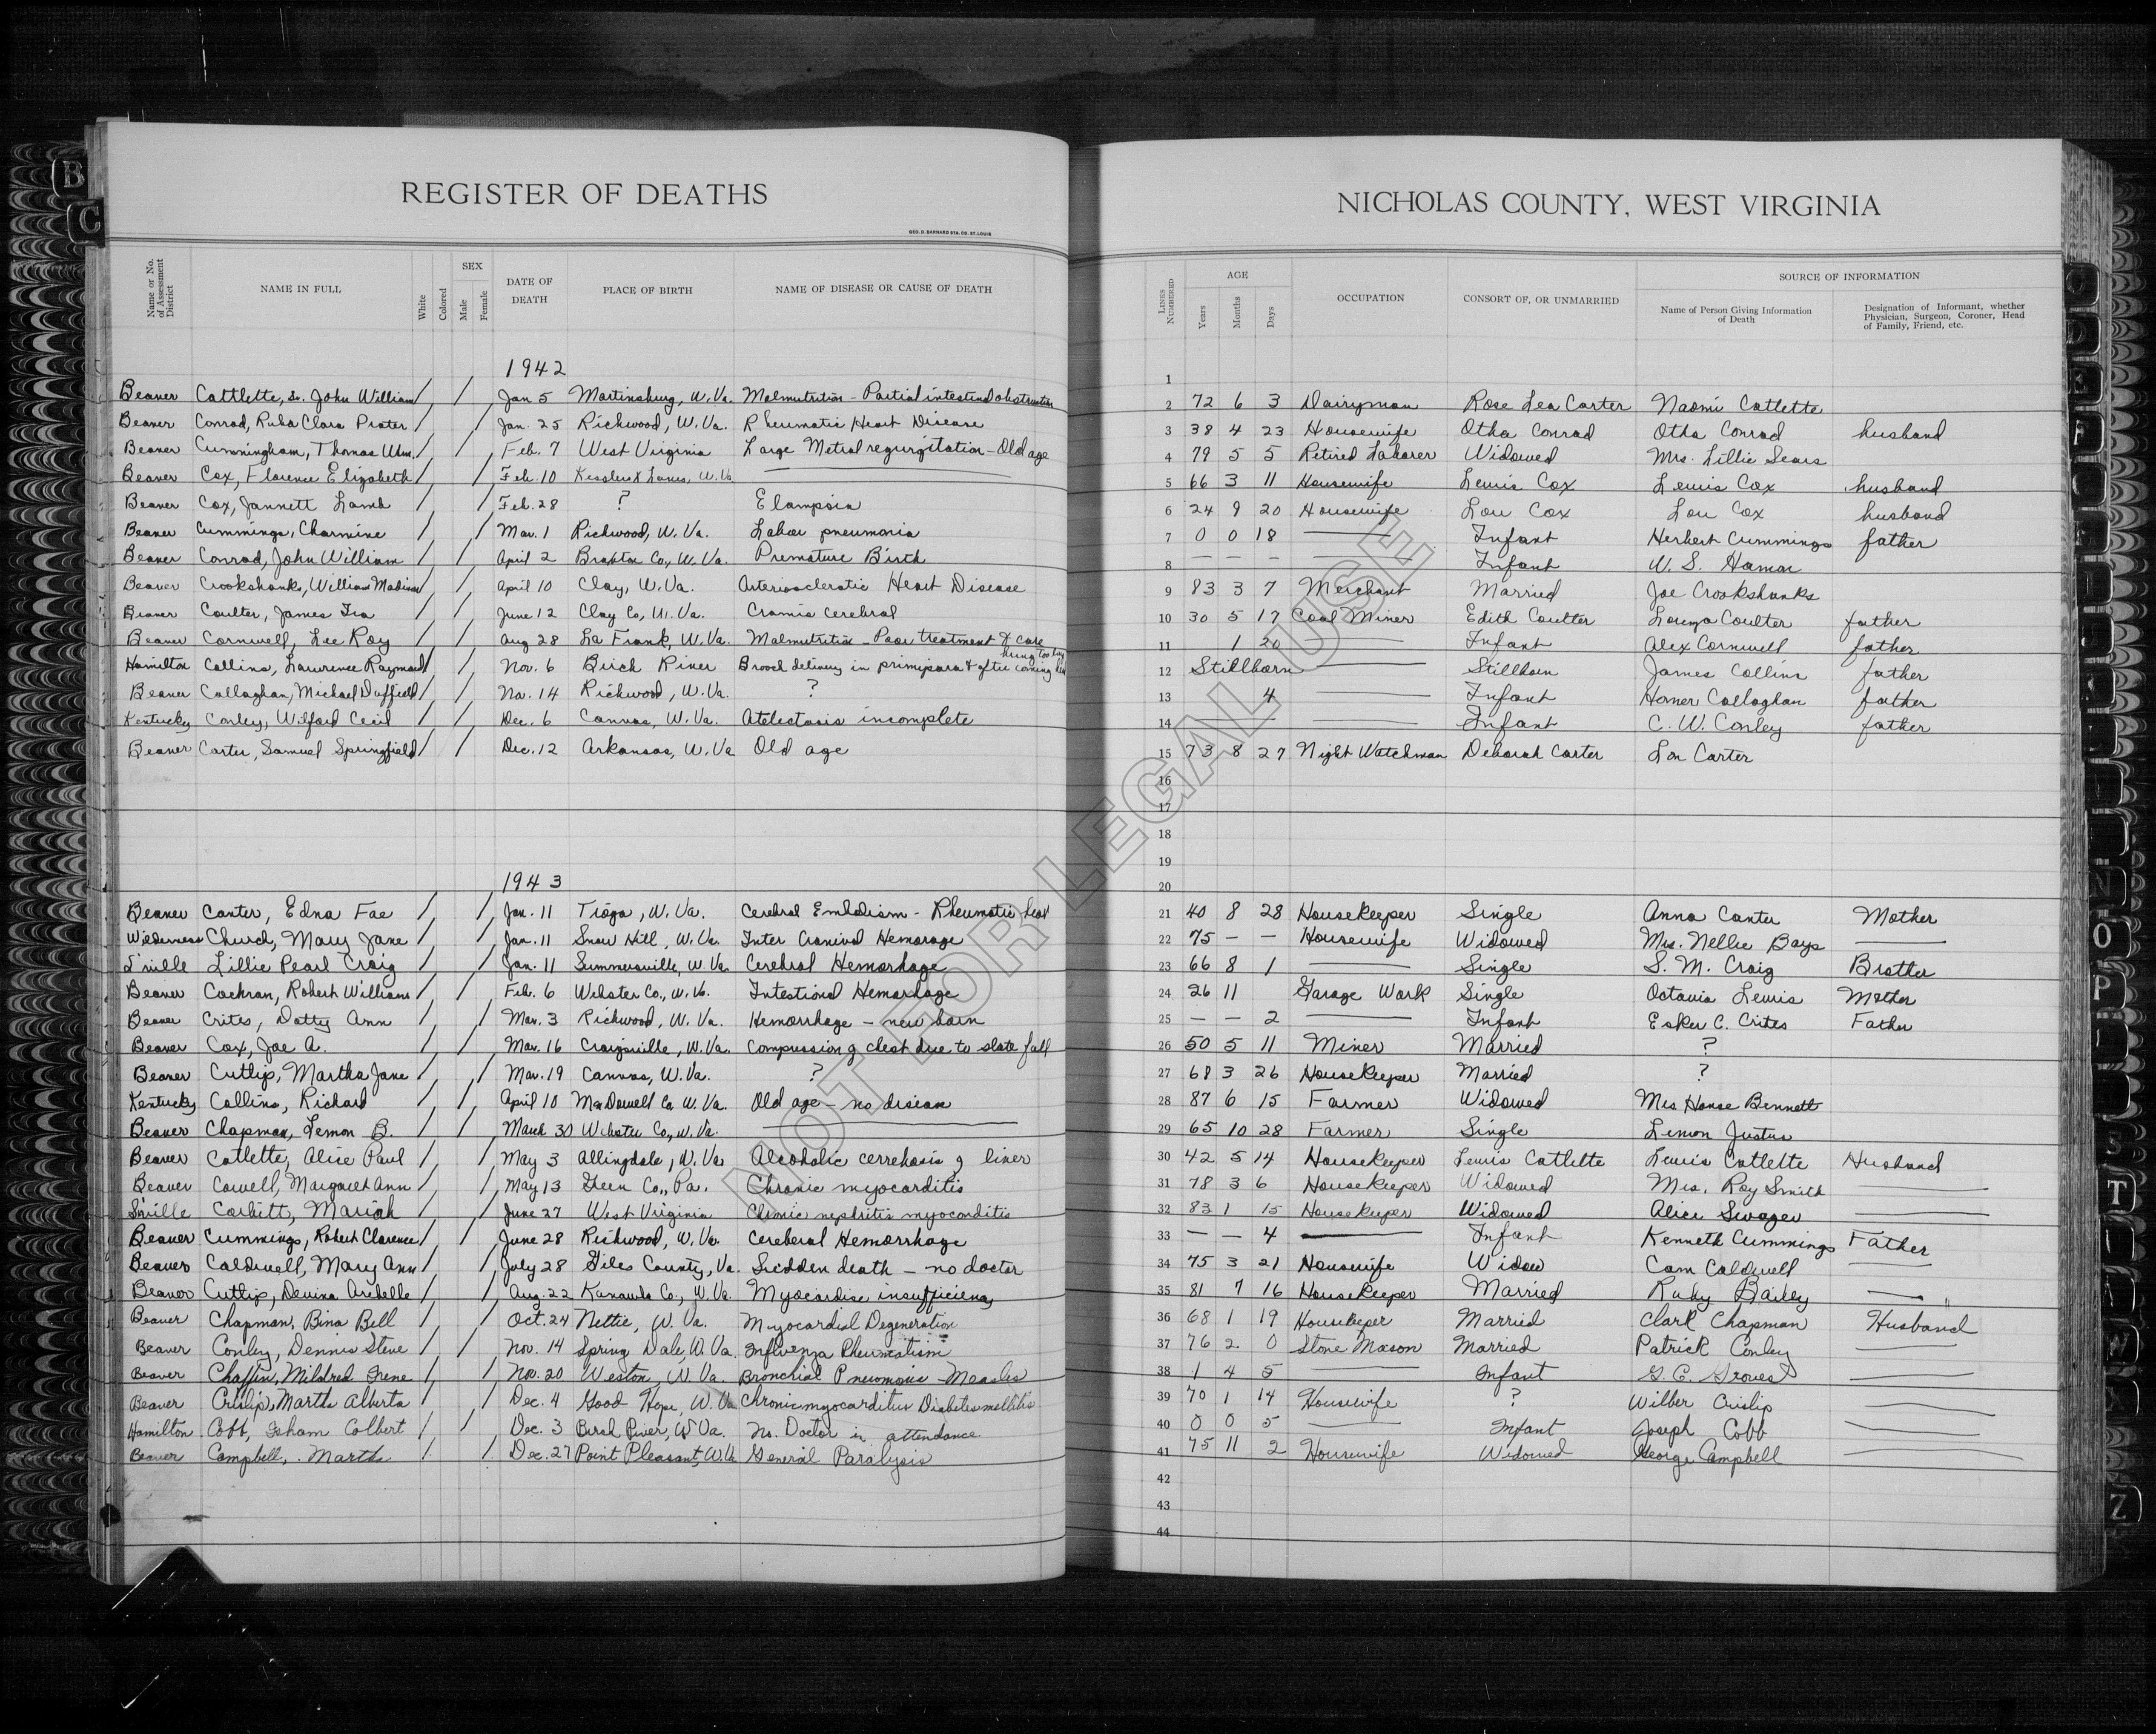 REGISTER OF DEATHS
GEO. D. BARNARD STA. CO. ST. LOUIS
Name or No. of Assessment District | NAME IN FULL | White | Colored | SEX Male | Female | DATE OF DEATH | PLACE OF BIRTH | NAME OF DISEASE OR CAUSE OF DEATH
1942
Beaver Cattlette, Sr. John William / / Jan 5 Martinsburg, W. Va. Malnutrition - Partial intestinal obstruction
Beaver Conrad, Ruba Clara Prater / / Jan. 25 Richwood, W. Va. Rheumatic Heart Disease
Beaver Cunningham, Thomas Wm. / / Feb. 7 West Virginia Large Metral regurgitation - Old age
Beaver Cox, Florence Elizabeth / / Feb. 10 Lanes, W. Va. —
Beaver Cox, Jannett Lamb / / Feb. 28 ? Elampsia
Beaver Cummings, Charmine / / Mar. 1 Richwood, W. Va. Lobar pneumonia
Beaver Conrad, John William / / April 2 Braxton Co., W. Va. Premature Birth
Beaver Crookshanks, William Madison / / April 10 Clay, W. Va. Arteriosclerotic Heart Disease
Beaver Coulter, James Ira / / June 12 Clay Co, W. Va. Cramia Cerebral
Beaver Cornwell, Lee Roy / / Aug 28 La Frank, W. Va. Malnutrition - Poor treatment & care
Hamilton Collins, Lawrence Raymond / / Nov. 6 Birch River Breech delivery in primipara & after coming
Beaver Callaghan, Michael Duffield / / No. 14 Richwood, W. Va. ?
Kentucky Conley, Wilford Cecil / / Dec. 6 Canvas, W. Va. Atelectasis incomplete
Beaver Carter, Samuel Springfield / / Dec. 12 Arkansas, W. Va Old age
1943
Beaver Canter, Edna Fae / / Jan. 11 Tioga, W. Va. Cerebral Embolism - Rheumatic heart
Wilderness Church, Mary Jane / / Jan. 11 Snow Hill, W. Va. Inter Cranival Hemorage
S'ville Lillie Pearl Craig / / Jan. 11 Summersville, W. Va. Cerebral Hemorhage
Beaver Cochran, Robert William / / Feb. 6 Webster Co., W. Va. Intestional Hemorhage
Beaver Crites, Dotty Ann / / Mar. 3 Richwood, W. Va. Hemorrhage - new born
Beaver Cox, Joe A. / / Mar. 16 Craigsville, W. Va. Compression of chest due to slate fall
Beaver Cutlip, Martha Jane / / Mar. 19 Canvas, W. Va. ?
Kentucky Collins, Richard / / April 10 McDowell Co W. Va. Old age - no disease
Beaver Chapman, Lemon B. / / March 30 Webster Co., W. Va. —
Beaver Catlette, Alice Paul / / May 3 Allingdale, W. Va Alcoholic cerrehosis of liver
Beaver Cowell, Margaret Ann / / May 13 Green Co., Pa. Chronic myocarditis
S'ville Corbitt, Mariah / / June 27 West Virginia Chronic nephritis myocarditis
Beaver Cummings, Robert Clarence / / June 28 Richwood, W. Va. Cereberal Hemorrhage
Beaver Caldwell, Mary Ann / / July 28 Giles County, Va. Sudden death - no doctor
Beaver Cutlip, Devina Aribelle / / Aug. 22 Kanawha Co., W. Va. Myocardise insufficiency
Beaver Chapman, Bina Bell / / Oct. 24 Nettie, W. Va. Myocardial Degeneration
Beaver Conley, Dennis Steve / / Nov. 14 Spring Dale, W. Va. Influenza Rheumatism
Beaver Chaffin, Mildred Irene / / Nov. 20 Weston, W. Va. Bronchial Pneumonia - Measles
Beaver Crislip, Martha Alberta / / Dec. 4 Good Hope, W. Va Chronic myocarditis Diabetes mellitis
Hamilton Cobb, Isham Colbert / / Dec. 3 Birch River, W Va. No. Doctor in attendance
Beaver Campbell, Martha / / Dec. 27 Point Pleasant, W. Va General Paralysis
NICHOLAS COUNTY, WEST VIRGINIA
LINES NUMBERED | AGE Years | Months | Days | OCCUPATION | CONSORT OF, OR UNMARRIED | SOURCE OF INFORMATION Name of Person Giving Information of Death | Designation of Informant, whether Physician, Surgeon, Coroner, Head of Family, Friend, etc.
1
2 72 6 3 Dairyman Rose Lea Carter Naomi Catlette
3 38 4 23 Housewife Otha Conrad Otha Conrad husband
4 79 5 5 Retired Laborer Widowed Mrs. Lillie Sears
5 66 3 11 Housewife Lewis Cox Lewis Cox husband
6 24 9 20 Housewife Lou Cox Lou Cox husband
7 0 0 18 — Infant Herbert Cummings father
8 — — — — Infant W. S. Hamar
9 83 3 7 Merchant Married Joe Crookshanks
10 30 5 17 Coal Miner Edith Coulter Lorenza Coulter father
11 1 20 — Infant Alex Cornwell father
12 Stillborn — Stillborn James Collins father
13 4 — Infant Homer Callaghan father
14 — — Infant C. W. Conley father
15 73 8 27 Night Watchman Deborah Carter Lon Carter
16
17
18
19
20
21 40 8 28 Housekeeper Single Anna Canter Mother
22 75 — — Housewife Widowed Mrs. Nellie Bays —
23 66 8 1 — Single S. M. Craig Brother
24 26 11 Garage Work Single Octavia Lewis Mother
25 — — 2 — Infant Esker C. Crites Father
26 50 5 11 Miner Married ?
27 68 3 26 Housekeeper Married ?
28 87 6 15 Farmer Widowed Mrs House Bennett
29 65 10 28 Farmer Single Lemon Justus
30 42 5 14 Housekeeper Lewis Catlette Lewis Catlette Husband
31 78 3 6 Housekeeper Widowed Mrs. Roy Smith —
32 83 1 15 Housekeeper Widowed Alice Swager —
33 — — 4 — Infant Kenneth Cummings Father
34 75 3 21 Housewife Widow Cam Caldwell —
35 81 7 16 Housekeeper Married Ruby Bailey —
36 68 1 19 Housekeeper Married Clark Chapman Husband
37 76 2 0 Stone Mason Married Patrick Conley —
38 1 4 5 — Infant G. C. Groves —
39 70 1 14 Housewife ? Wilber Crislip —
40 0 0 5 — Infant Joseph Cobb —
41 75 11 2 Housewife Widowed George Campbell —
42
43
44
NOT FOR LEGAL USE